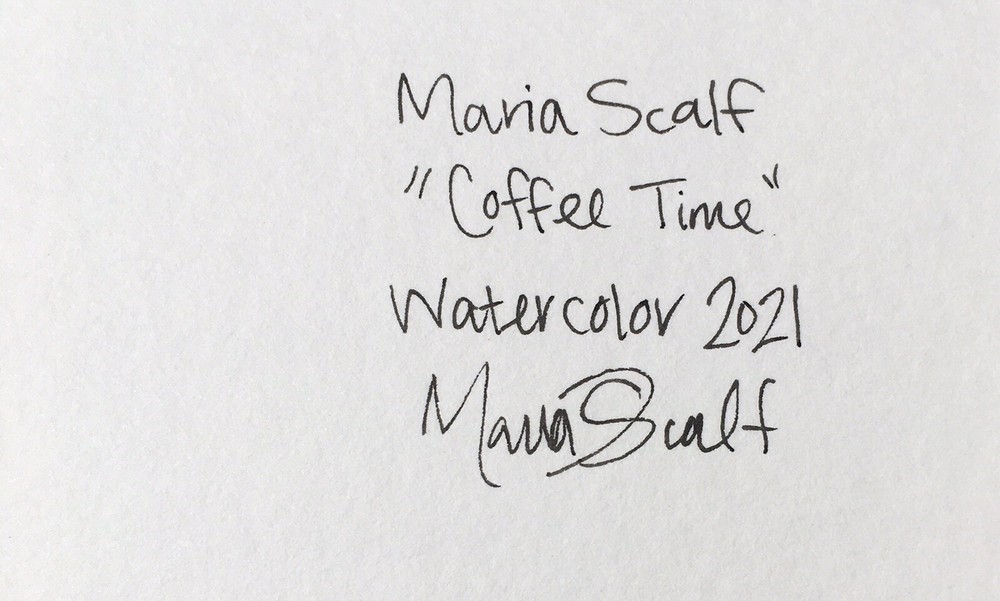 Maria Scalf
"Coffee Time"
Watercolor 2021
Maria Scalf